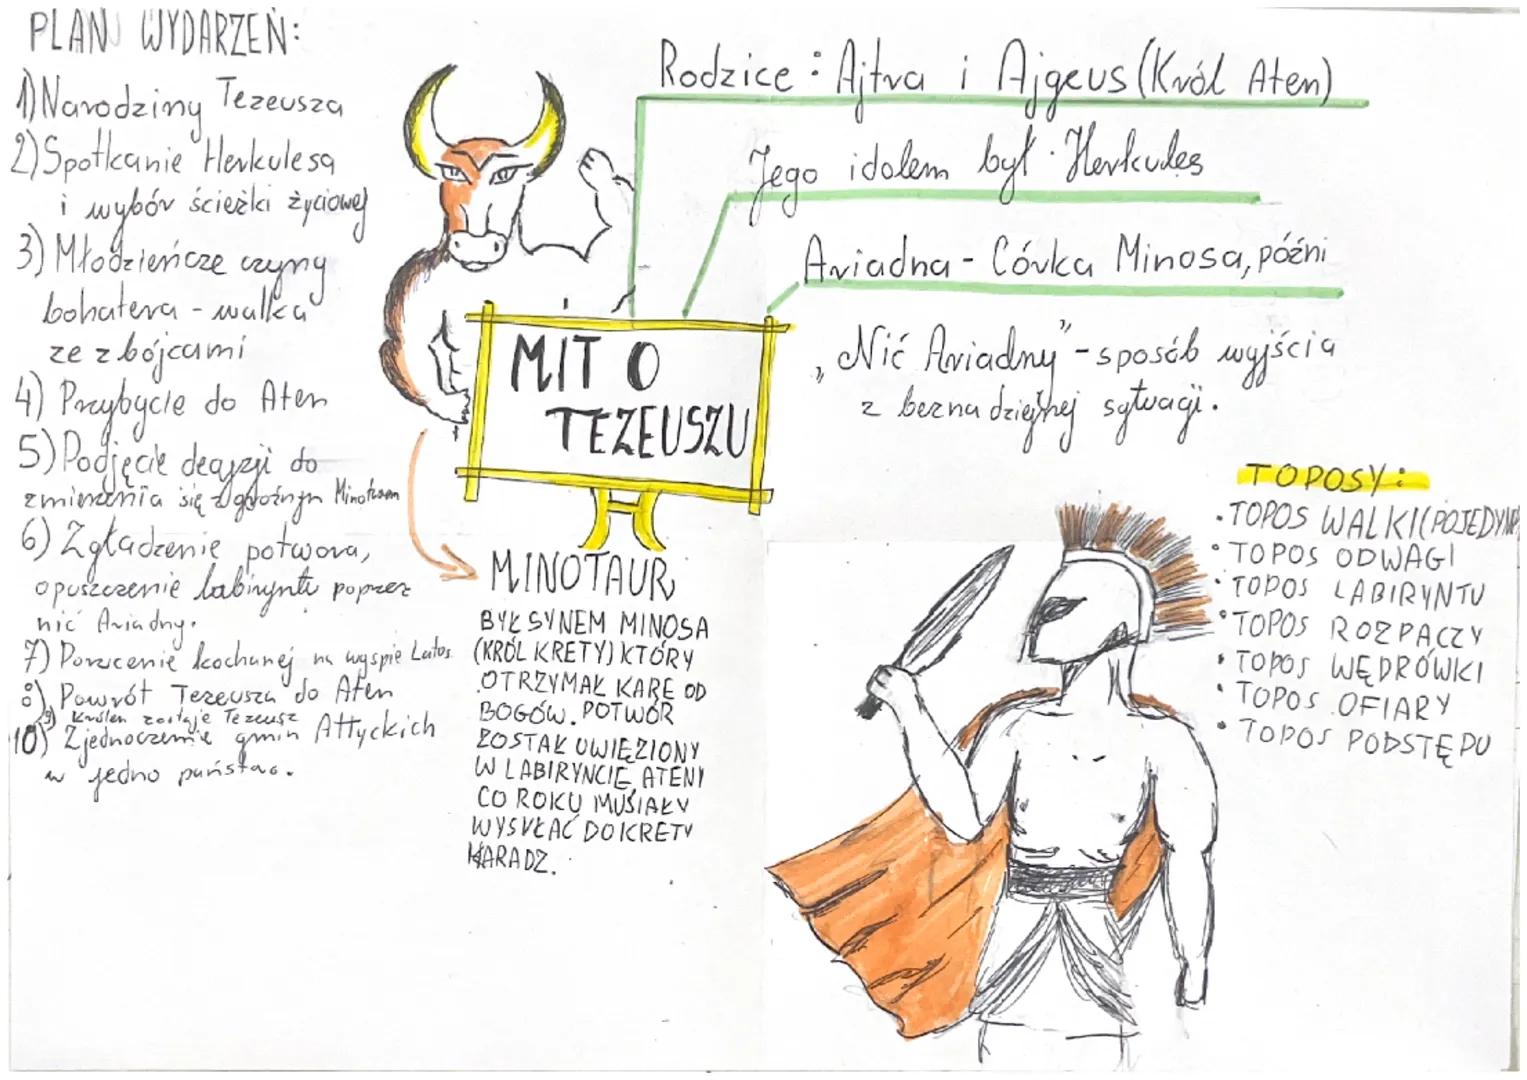 PLAN WYDARZEŃ:
1) Narodziny Tezeusza
2) Spotkanie Herkulesa
i wybór ścieżki życiowej
3) Młodzieńcze czyny
bohatera - walka
ze zbójcami
4) Przybycie do Aten
5) Podjęcie decyzji do
zmierzenia się z groźnym Minotaurem
6) Zgładzenie potwora,
opuszczenie labiryntu poprzez
nić Ariadny.
7) Porzucenie kochanej na wyspie
8) Powrót Tezeusza do Aten
9) Królem zostaje Tezeusz
10) Zjednoczenie gmin Attyckich
w jedno państwo.
Rodzice : Ajtra i Ajgeus (Król Aten)
Jego idolem był Herkules
Ariadna - Córka Minosa, późni
„Nić Ariadny" - sposób wyjścia
z beznadziejnej sytuacji.
MIT O
TEZEUSZU
MINOTAUR
BYŁ SYNEM MINOSA
(KRÓL KRETY) KTÓRY
OTRZYMAŁ KARĘ OD
BOGÓW. POTWÓR
ZOSTAŁ UWIĘZIONY
W LABIRYNCIE ATENY
CO ROKU MUSIAŁY
WYSYŁAĆ DO KRETY
HARADZ.
TOPOSY:
• TOPOS WALKI (POJEDYNK
• TOPOS ODWAGI
• TOPOS LABIRYNTU
• TOPOS ROZPACZY
• TOPOS WĘDRÓWKI
• TOPOS OFIARY
• TOPOS PODSTĘPU